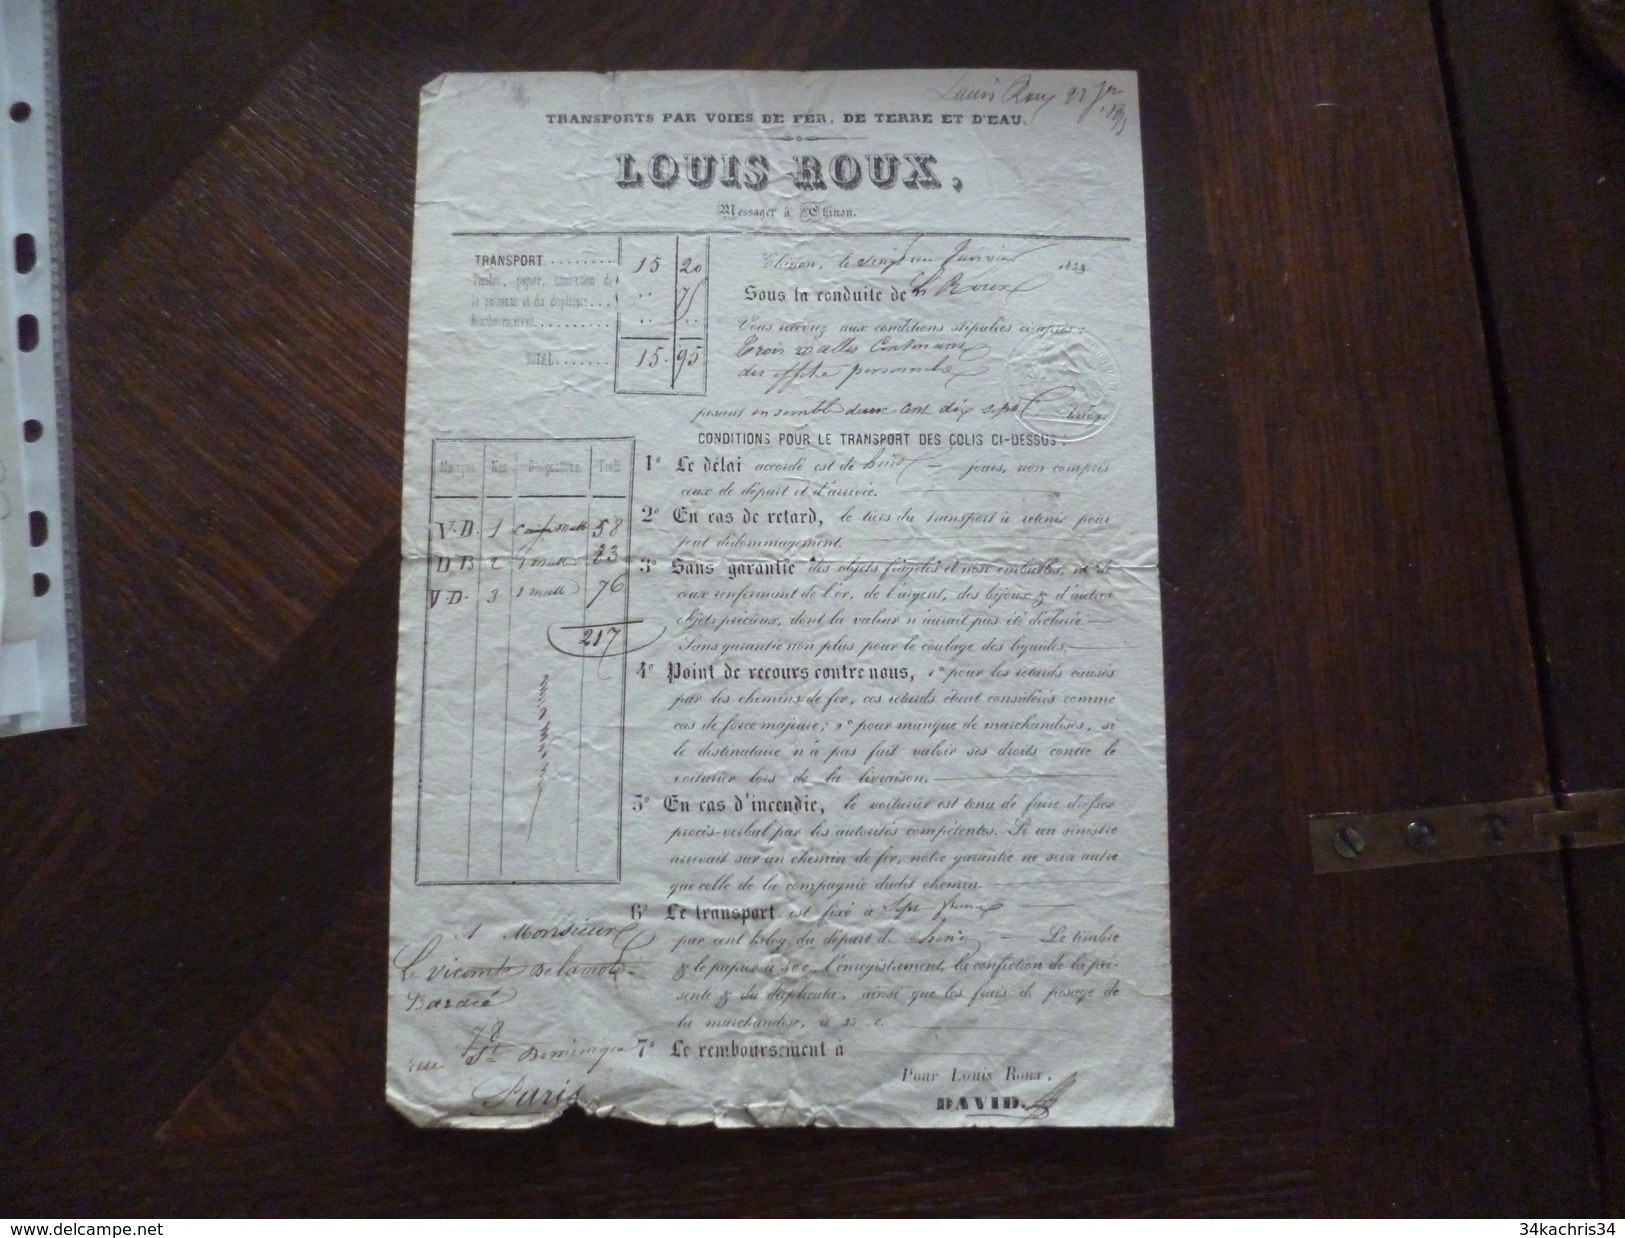 Louis Roux 22 Jer
TRANSPORTS PAR VOIES DE FER, DE TERRE ET D'EAU.
LOUIS ROUX,
Messager à Chinon.
TRANSPORT ........ 15 20
Timbre, papier, confection de
la présente et du duplicata... .. 75
Remboursement.......... .. ..
TOTAL....... 15. 95
Chinon, le vingt un Janvier 1853
Sous la conduite de L. Roux
Vous recevrez aux conditions stipulées ci-après:
trois malles Contenant
des effets personnels
pesant ensemble deux cent dix sept kilog.
CONDITIONS POUR LE TRANSPORT DES COLIS CI-DESSUS:
Marques Nos Désignations Poids
V.D. 1 58
D B 2 1 malle 83
V.D. 3 1 malle 76
217
1° Le délai accordé est de huit jours, non compris
ceux de départ et d'arrivée.
2° En cas de retard, le tiers du transport à retenir pour
tout dédommagement.
3° Sans garantie des objets fragiles et non emballés, ni de
ceux renfermant de l'or, de l'argent, des bijoux & d'autres
objets précieux, dont la valeur n'aurait pas été déclarée.
Sans garantie non plus pour le coulage des liquides.
4° Point de recours contre nous, 1° pour les retards causés
par les chemins de fer, ces retards étant considérés comme
cas de force majeure; 2° pour manque de marchandises, si
le destinataire n'a pas fait valoir ses droits contre le
voiturier lors de la livraison.
5° En cas d'incendie, le voiturier est tenu de faire dresser
procès-verbal par les autorités compétentes. Si un sinistre
arrivait sur un chemin de fer, notre garantie ne sera autre
que celle de la compagnie dudit chemin.
6° Le transport est fixé à Sept francs
par cent kilog. du départ de Chinon Le timbre
& le papier à 40 c., l'enregistrement, la confection de la pré-
sente & du duplicata, ainsi que les frais de pesage de
la marchandise, à 35 c.
7° Le remboursement à
A Monsieur
Le Vicomte Delamotte
Baracé
rue St Dominique 78
Paris
Pour Louis Roux,
DAVID.
www.delcampe.net
34kachris34